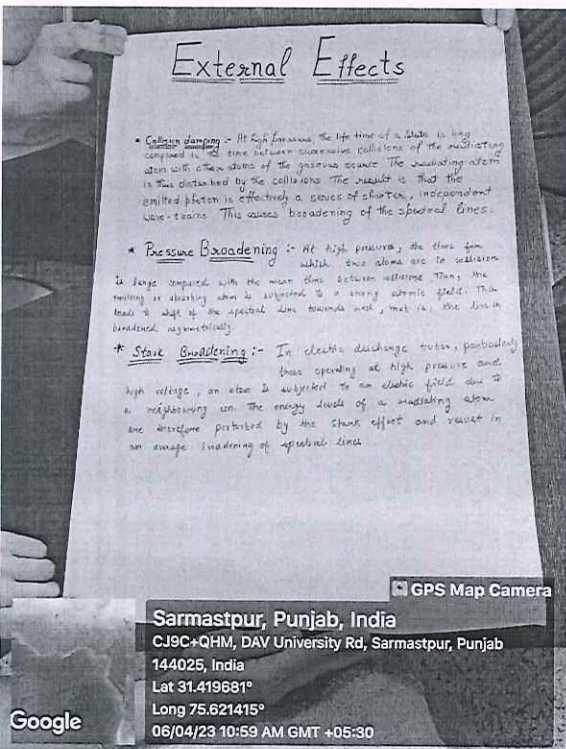 External Effects
• Collision damping :- At high pressures, the life time of a state is long
compared to the time between successive collisions of the radiating
atom with other atoms of the gaseous source The radiating atom
is thus disturbed by the collisions The result is that the
emitted photon is effectively a series of shorter, independent
wave-trains This causes broadening of the spectral lines.
* Pressure Broadening :- At high pressure, the time for
which two atoms are in collision
is large compared with the mean time between collisions Then, the
emitting or absorbing atom is subjected to a strong atomic field. This
leads to shift of the spectral line towards red, that is, the line is
broadened asymmetrically.
* Stark Broadening :- In electric discharge tubes, particularly
those operating at high pressure and
high voltage, an atom is subjected to an electric field due to
a neighbouring ion. The energy levels of a radiating atom
are therefore perturbed by the stark effect and result in
an average broadening of spectral lines
GPS Map Camera
Sarmastpur, Punjab, India
CJ9C+QHM, DAV University Rd, Sarmastpur, Punjab
144025, India
Lat 31.419681°
Long 75.621415°
06/04/23 10:59 AM GMT +05:30
Google